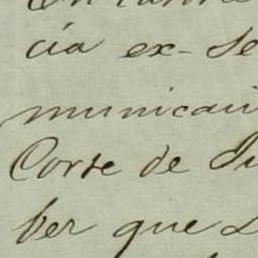 cia ex-Se
municaci
Corte de Ju
ber que